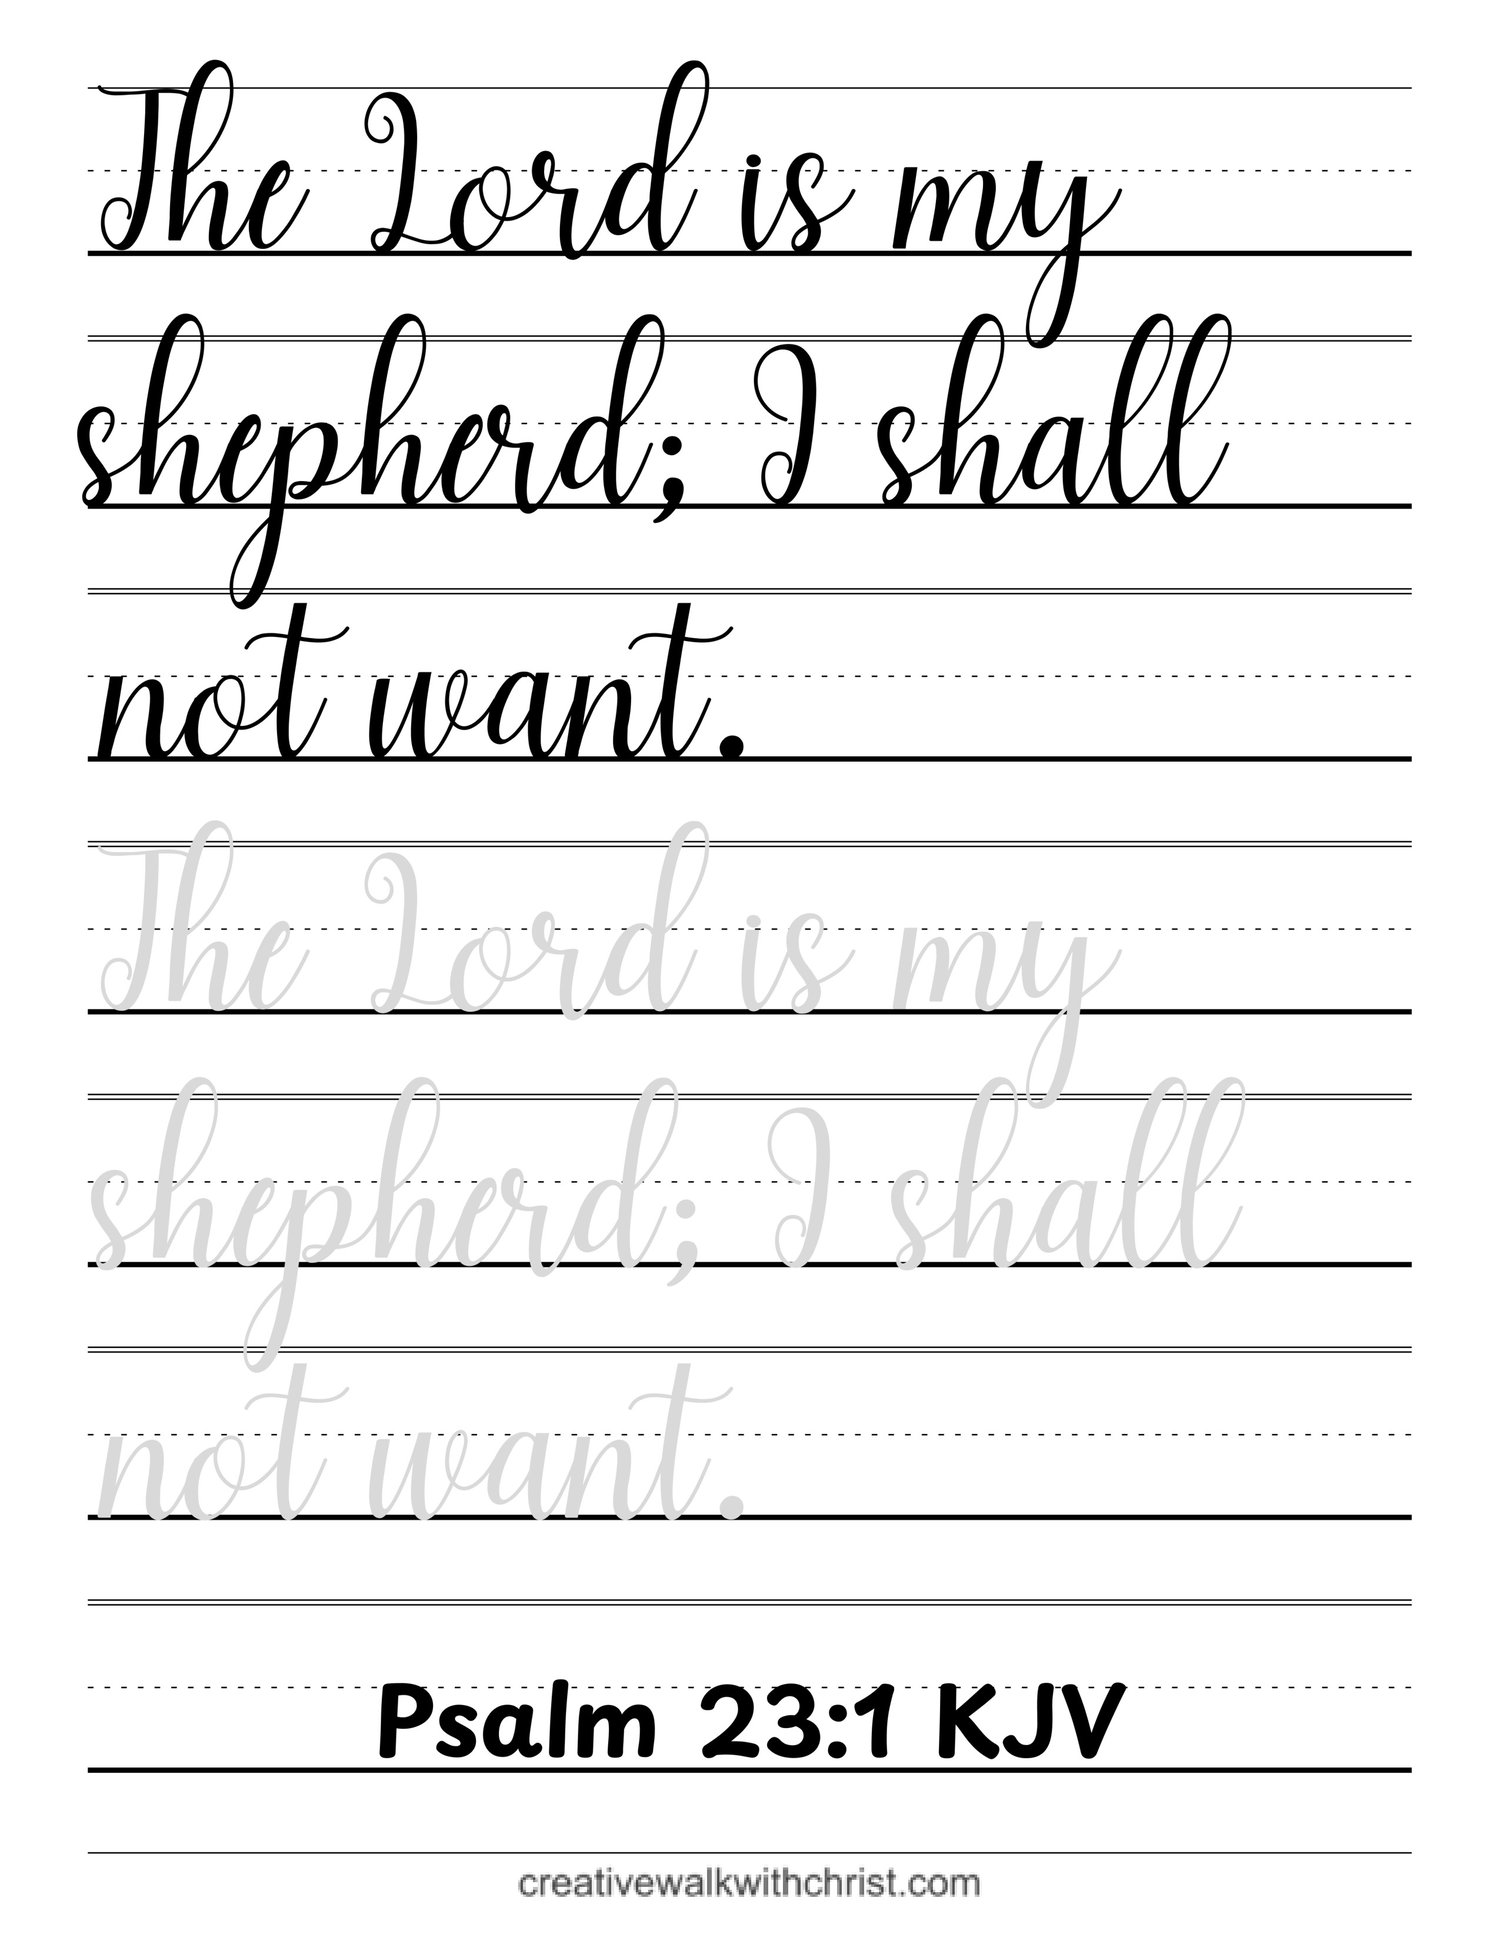 The Lord is my
shepherd; I shall
not want.
The Lord is my
shepherd; I shall
not want.
Psalm 23:1 KJV
creativewalkwithchrist.com